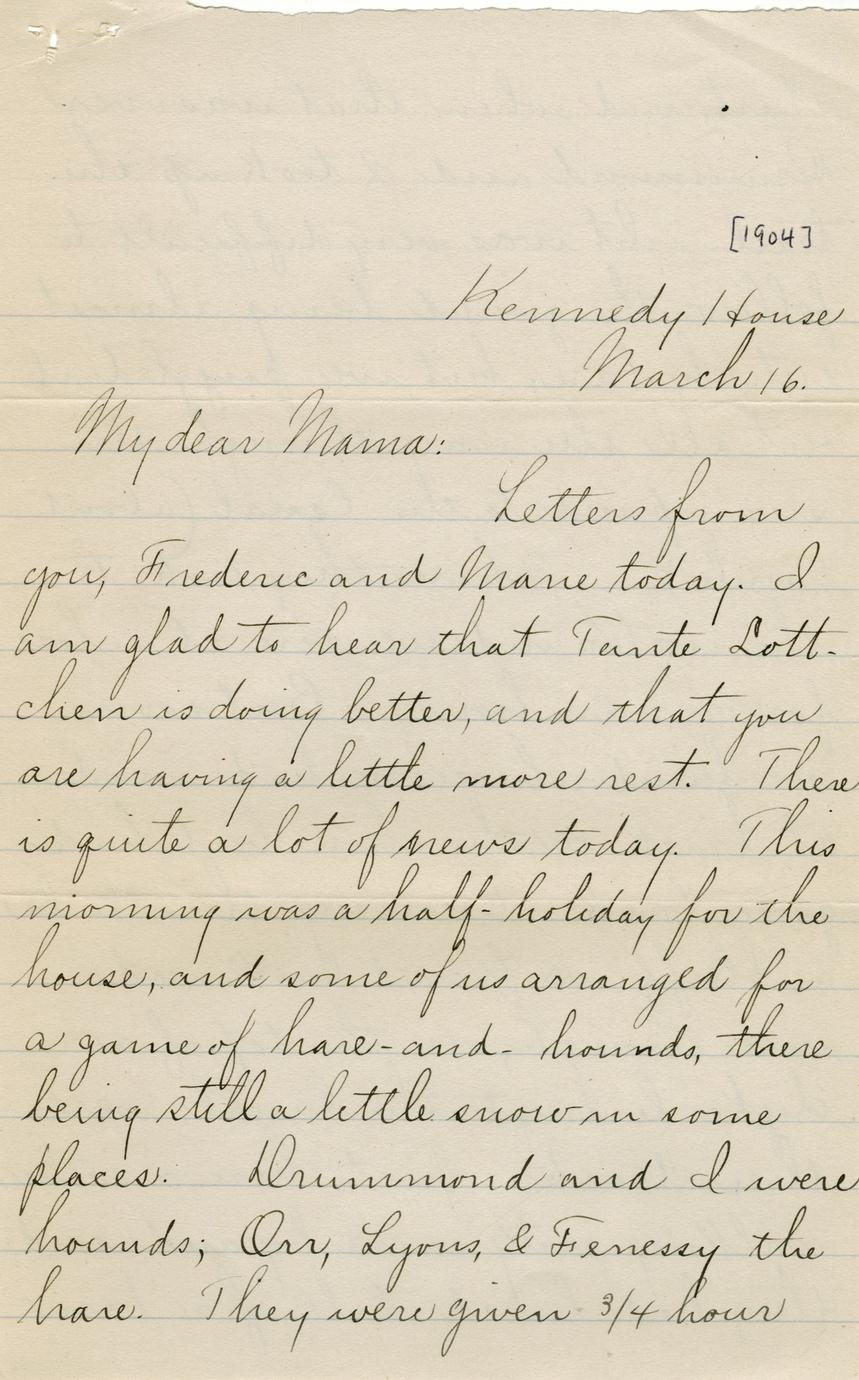 [1904]
Kennedy House
March 16.
My dear Mama:
Letters from
you, Frederic and Marie today. I
am glad to hear that Tante Lott-
chen is doing better, and that you
are having a little more rest. There
is quite a lot of news today. This
morning was a half-holiday for the
house, and some of us arranged for
a game of hare-and-hounds, there
being still a little snow in some
places. Drummond and I were
hounds; Orr, Lyons, & Fenessy the
hare. They were given 3/4 hour